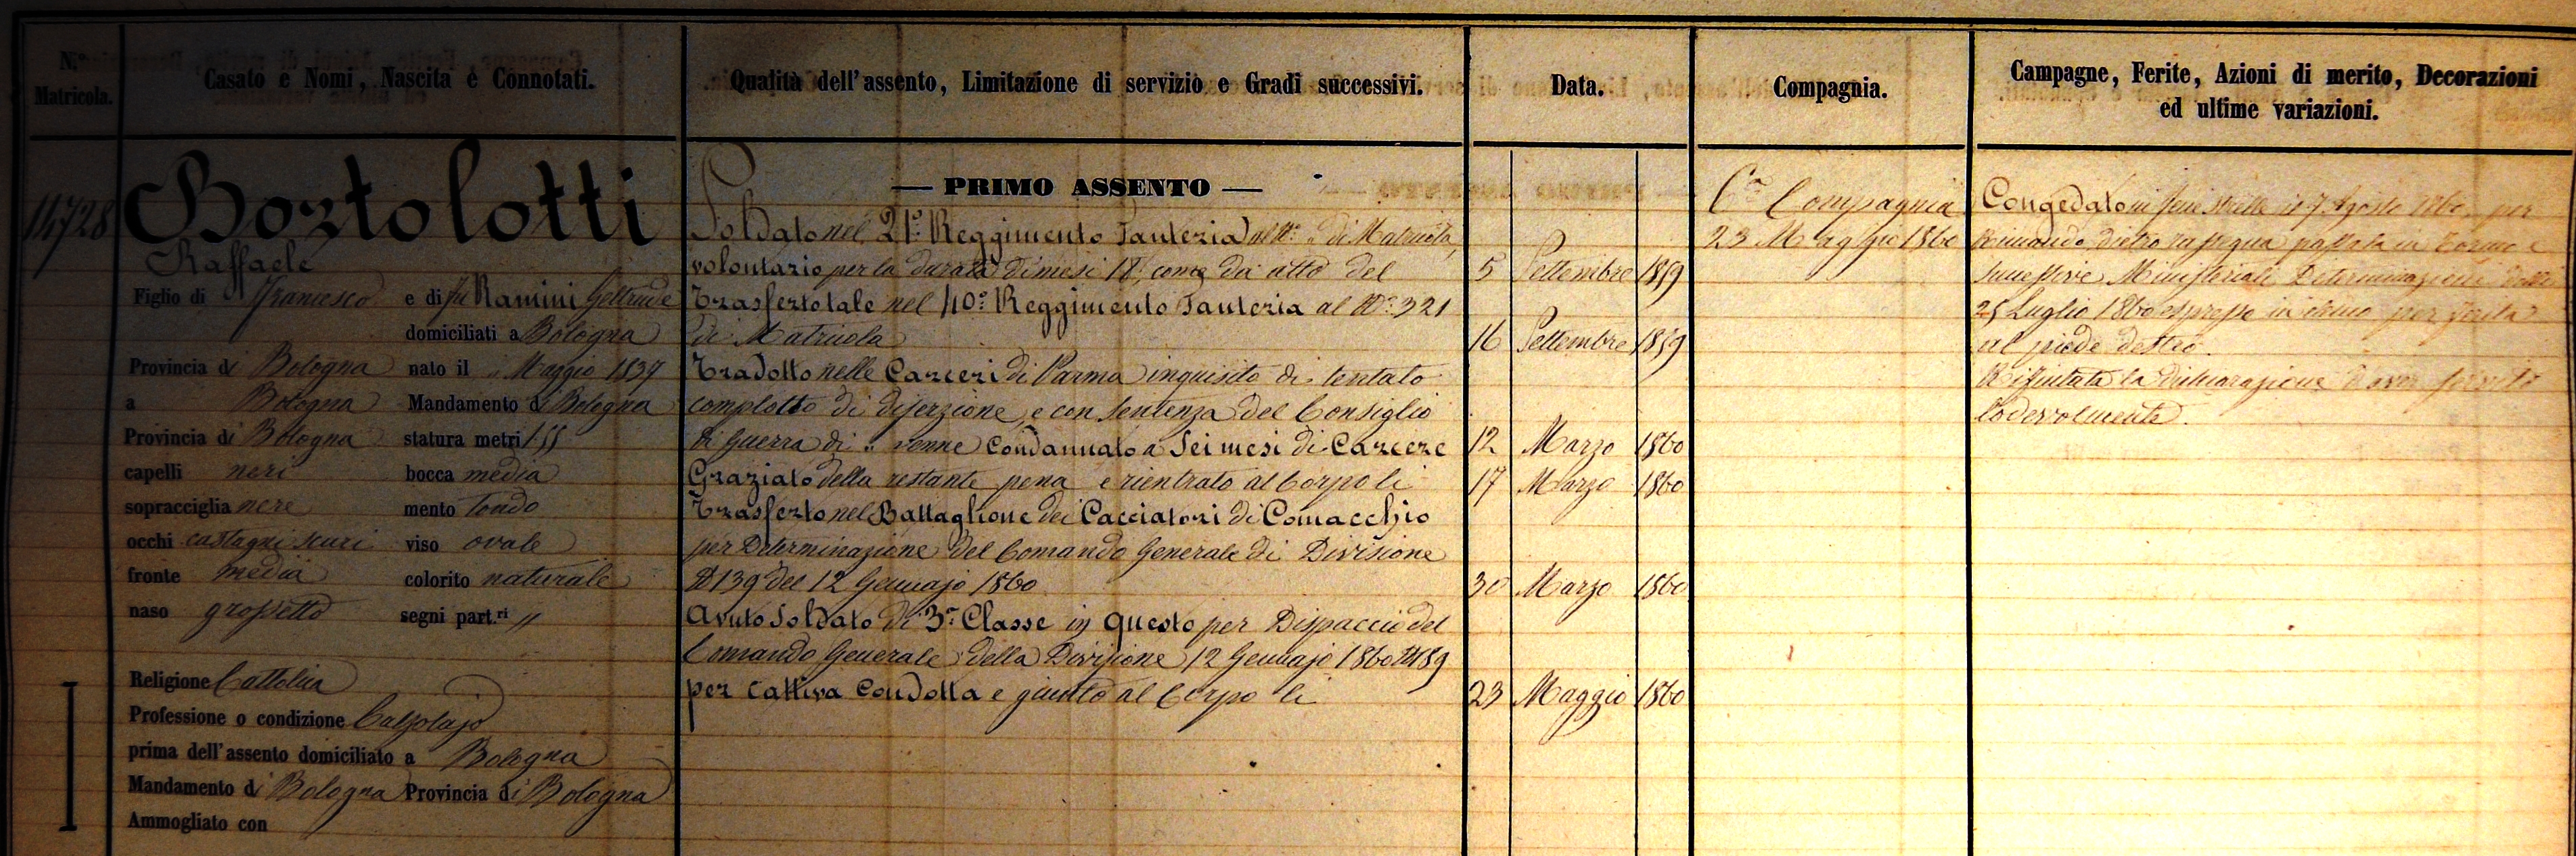 N.º Matricola.
Casato e Nomi, Nascita e Connotati.
Qualità dell'assento, Limitazione di servizio e Gradi successivi.
Data.
Compagnia.
Campagne, Ferite, Azioni di merito, Decorazioni
ed ultime variazioni.
14728
Bortolotti
Raffaele
Figlio di Francesco e di fu Ramini Geltrude
domiciliati a Bologna
Provincia di Bologna nato il " Maggio 1839
a Bologna Mandamento di Bologna
Provincia di Bologna statura metri 1.55
capelli neri bocca media
sopracciglia nere mento tondo
occhi castagni scuri viso ovale
fronte media colorito naturale
naso grossetto segni part.ri "
Religione Cattolica
Professione o condizione Calzolajo
prima dell'assento domiciliato a Bologna
Mandamento di Bologna Provincia di Bologna
Ammogliato con
— PRIMO ASSENTO —
Soldato nel 21º Reggimento Fanteria al Nº " di Matricola
volontario per la durata di mesi 18, come da atto del 5 Settembre 1859
Trasferto tale nel 40º Reggimento Fanteria al Nº 321
di Matricola 16 Settembre 1859
Tradotto nelle Carceri di Parma inquisito di tentato
complotto di diserzione, e con sentenza del Consiglio
di Guerra di " venne Condannato a Sei mesi di Carcere 12 Marzo 1860
Graziato della restante pena e rientrato al Corpo li 17 Marzo 1860
Trasferto nel Battaglione dei Cacciatori di Comacchio
per Determinazione del Comando Generale di Divisione
Nº 139 del 12 Gennajo 1860 30 Marzo 1860
Avuto Soldato di 3ª Classe in questo per Dispaccio del
Comando Generale della Divisione 12 Gennajo 1860 Nº 189
per cattiva Condotta e giunto al Corpo li 23 Maggio 1860
Cª Compagnia
23 Maggio 1860
Congedato in Fenestrelle il 7 Agosto 1860 per
Rimando dietro rassegna passata in Torino e
successive Ministeriali Determinazioni delli
25 Luglio 1860 espresse in esteso per ferita
al piede destro.
Rifiutata la dichiarazione d'aver servito
lodevolmente.